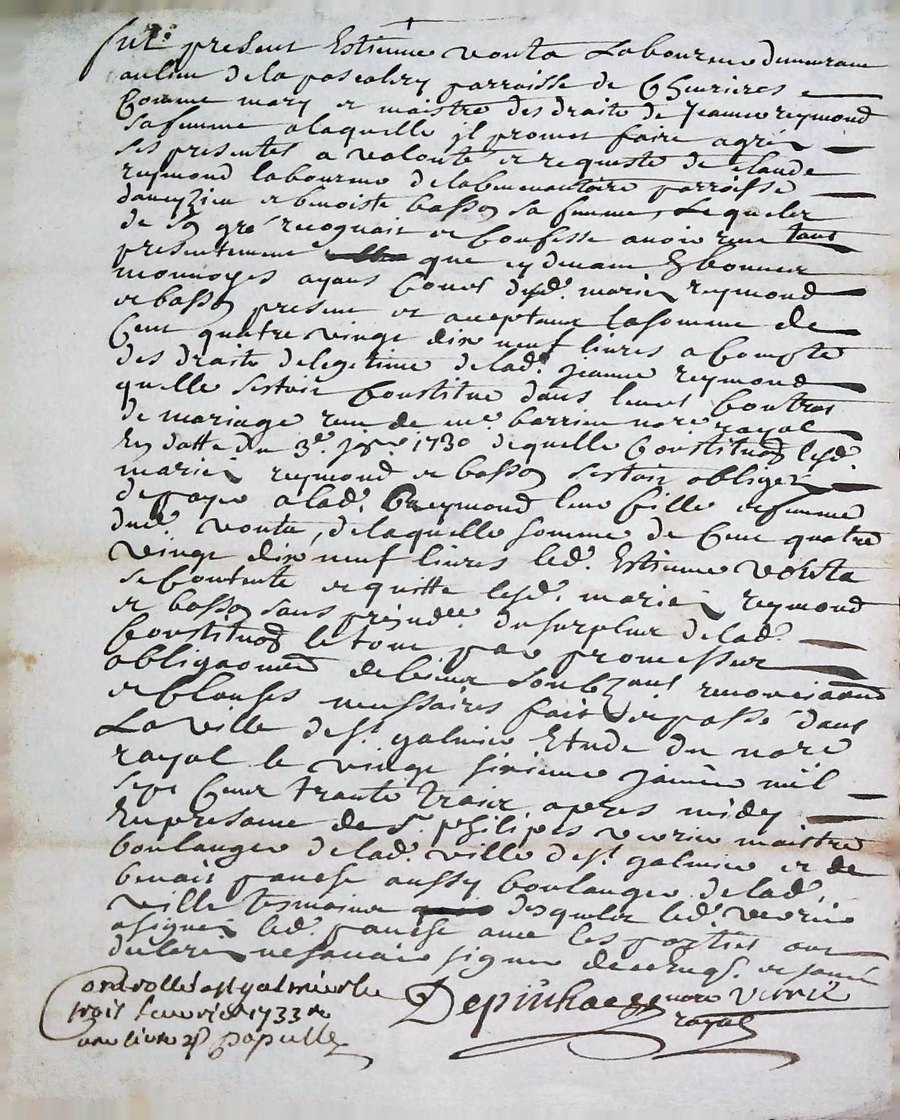 fut present Estienne vouta Laboureur demeurant
au lieu de la pascalery parroisse de Chevrieres
Comme mary et maistre des droits de Jeanne reymond
sa femme a laquelle il promet faire agreer
ses presentes a volonté et requeste de Claude
reymond laboureur de parroisse
daveyzieu et benoiste basson sa femme, Lequel
de son gré recognait et Confesse avoir receu tant
presentement que cy devant En bonnes
monnoyes ayant Cours desd. mariés reymond
et basson present et acceptant la somme de
Cent quatre vingt dix neuf livres a Compte
des droits de legitime de lad. Jeanne reymond
quelle sestoit Constitué dans leurs Contrat
de mariage receu de me. barrieu nore royal
En datte du 3e. 1730 de quelle Constituon lesd.
mariés reymond et basson sestoit obligez
de payer a lad. reymond leur fille et femme
dud. vouta, de laquelle somme de Cent quatre
vingt dix neuf livres led. Estienne vouta
se Contente et quitte lesd. mariés reymond
et basson sans prejudice du surplus de lad.
Constituon le tout par promesses
obligaon de biens renonciaons
et Clauses nessaires fait et passé dans
La ville de St. galmier Etude du nore
royal le vingt sixieme janvier mil
sept Cent trante trois apres midy
En presance de Sr. philipes verrie maistre
boulanger de lad. ville de St. galmier et de
benoit aussy boulanger de lad.
ville temoins desquels led. verrie
a signé led. avec les parties ont
declaré ne scavoir signer de ce enqs. et
Depinhac nore verrie
royal
Controllé a St galmier le
trois fevrier 1733 r
une livre 4s papulle